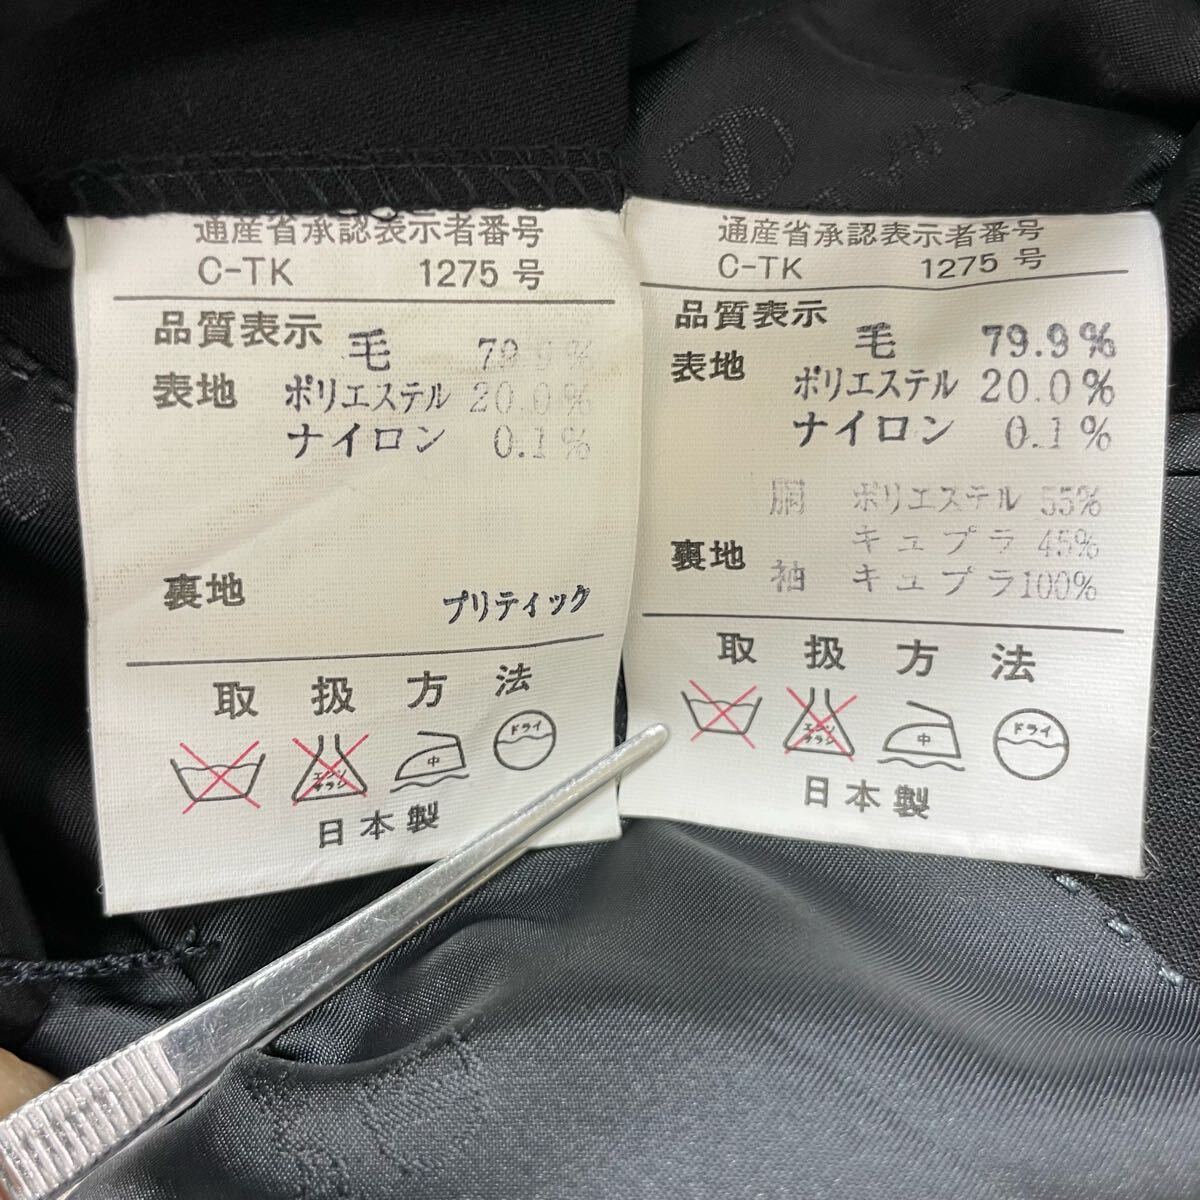 通産省承認表示者番号
C-TK 1275号
品質表示
毛 79.9%
表地
ポリエステル 20.0%
ナイロン 0.1%
裏地 プリティック
取扱方法
エンソ
サラシ
中
ドライ
日本製
通産省承認表示者番号
C-TK 1275号
品質表示
毛 79.9%
表地
ポリエステル 20.0%
ナイロン 0.1%
胴 ポリエステル 55%
キュプラ 45%
裏地
袖 キュプラ 100%
取扱方法
エンソ
サラシ
中
ドライ
日本製